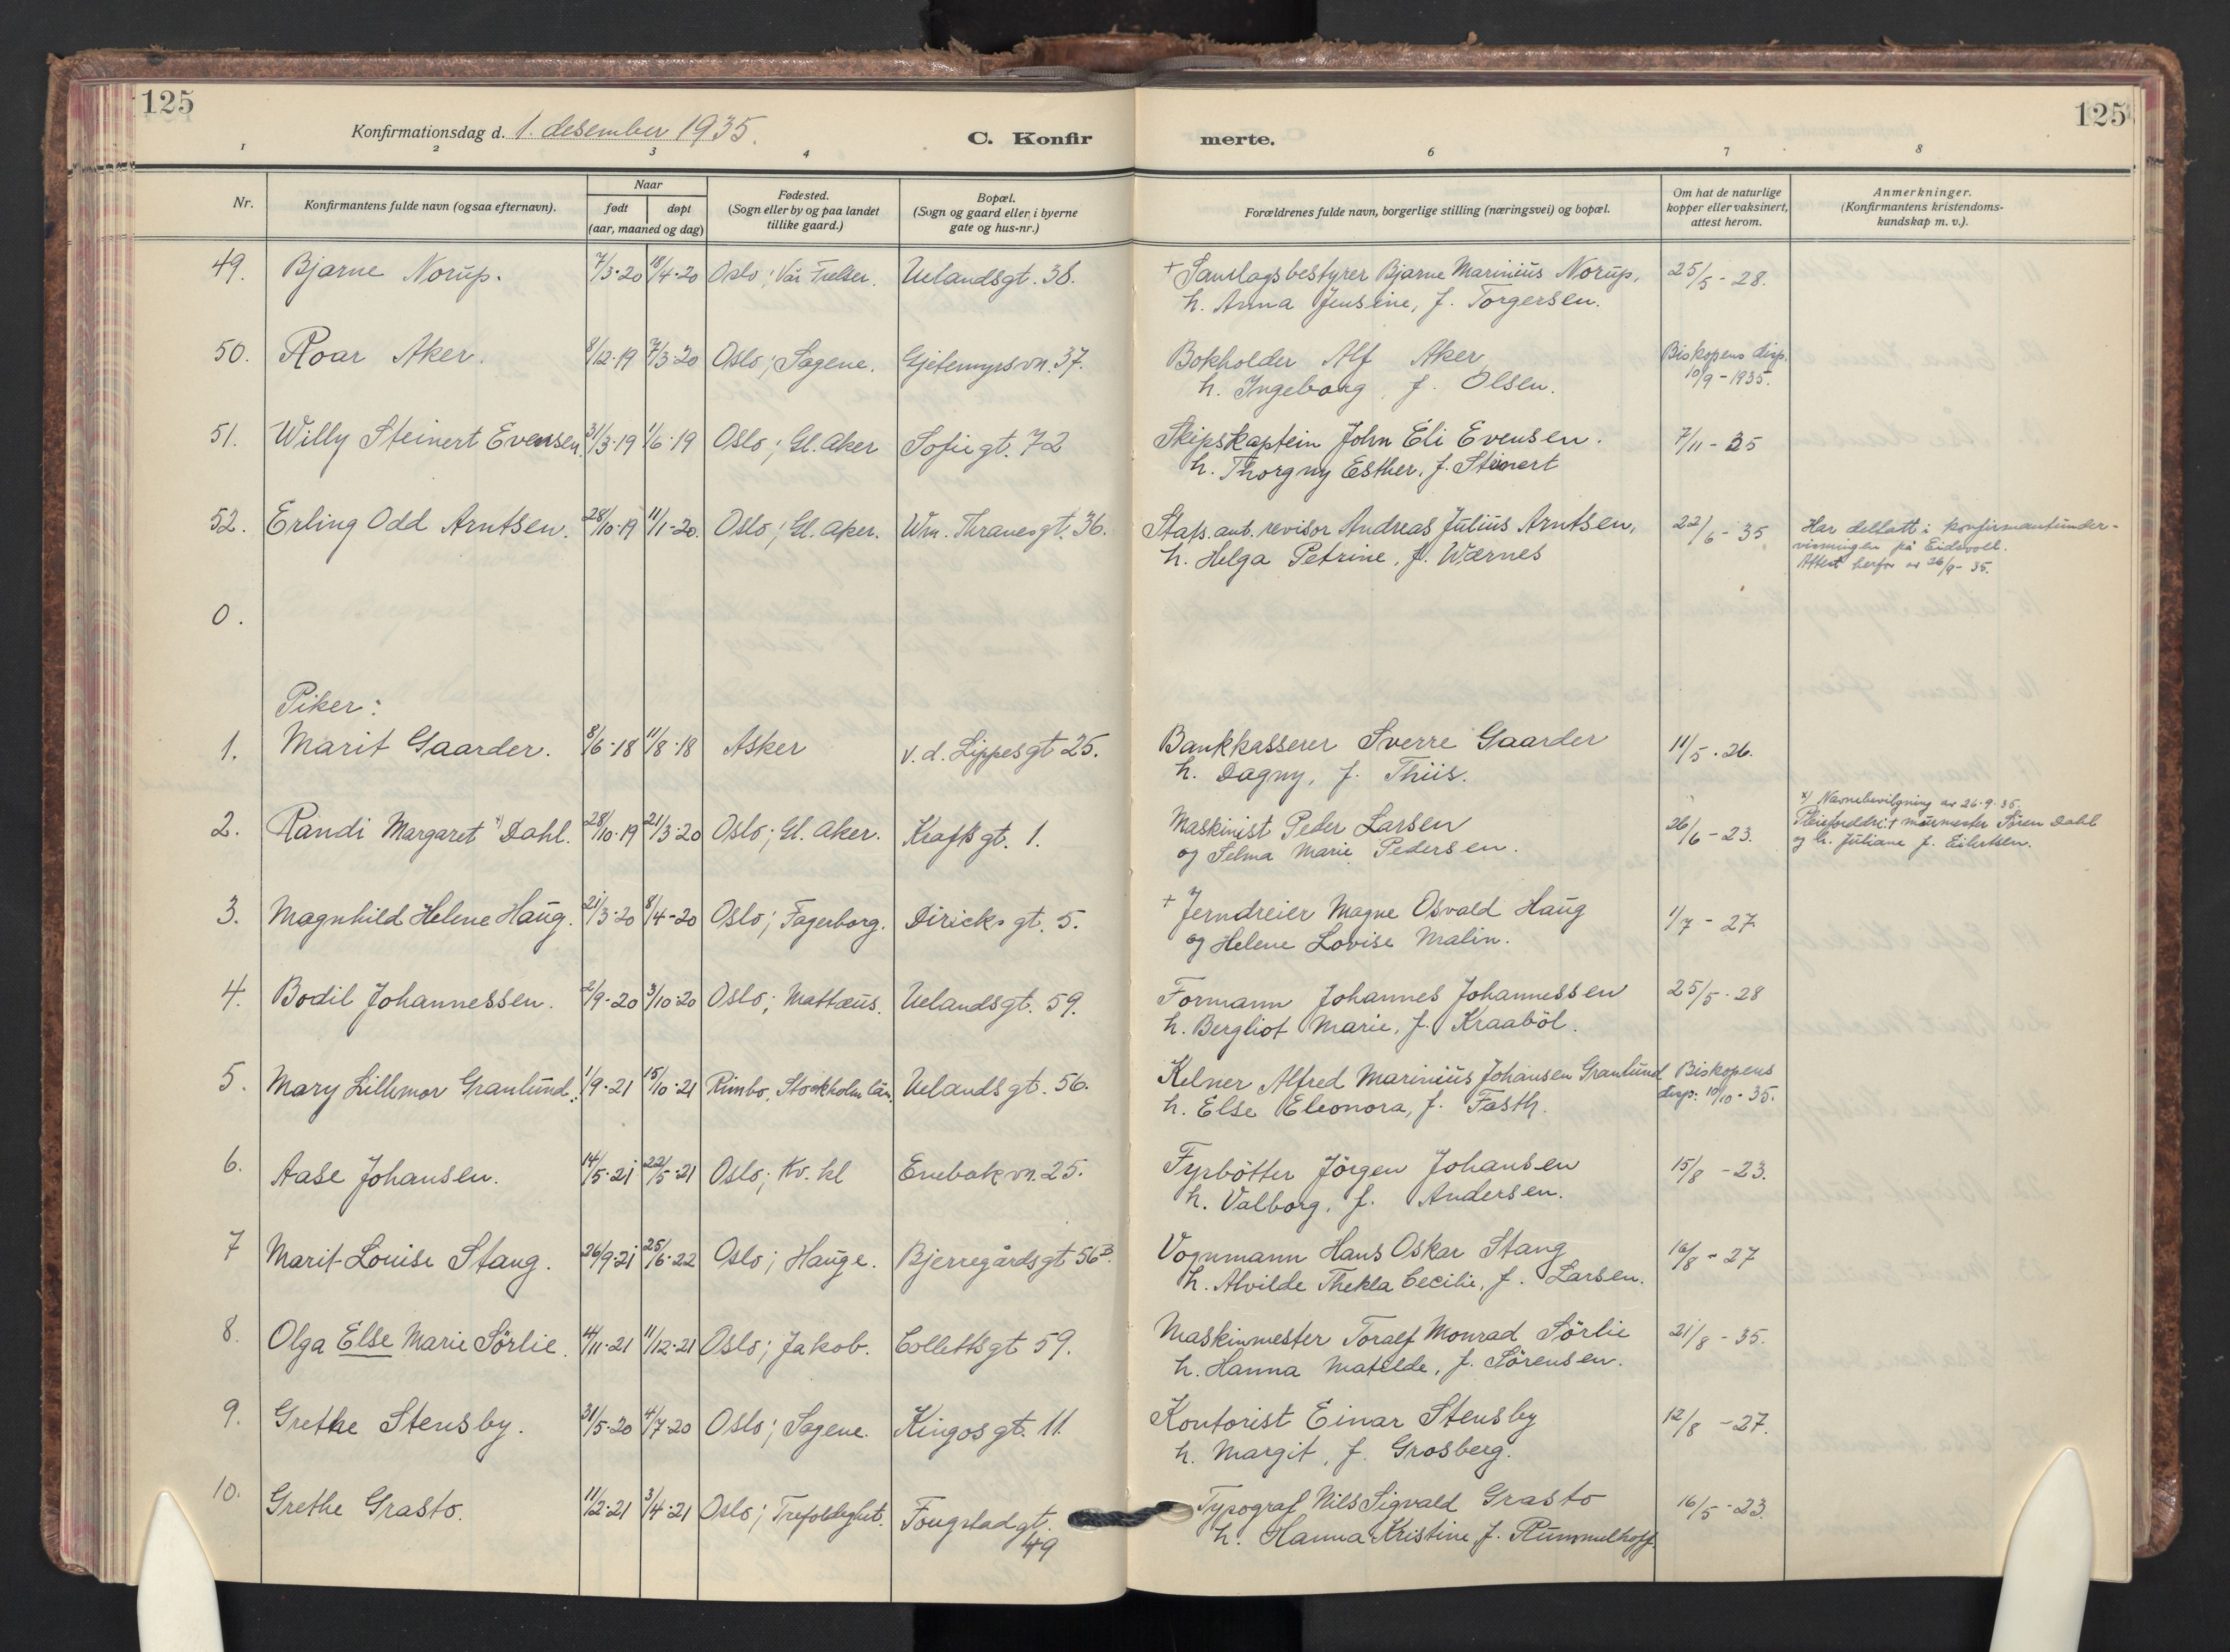 125
Konfirmationsdag d. 1. desember 1935.
C. Konfir
merte.
125
1 2 3 4 6 7 8
Nr.
Konfirmantens fulde navn (ogsaa efternavn).
Naar
født
døpt
(aar, maaned og dag)
Fødested.
(Sogn eller by og paa landet
tillike gaard.)
Bopæl.
(Sogn og gaard eller i byerne
gate og hus-nr.)
Forældrenes fulde navn, borgerlige stilling (næringsvei) og bopæl.
Om hat de naturlige
kopper eller vaksinert,
attest herom.
Anmerkninger.
(Konfirmantens kristendoms-
kundskap m. v.).
49. Bjarne Norup. 7/3-20 18/4-20 Oslo; Vår Frelser. Uelandsgt. 38. + Samlagsbestyrer Bjarne Marinius Norup, 25/5-28.
h. Anna Jensine, f. Torgersen.
50. Roar Aker. 8/12-19 7/3-20 Oslo; Sagene. Gjetemyrsvn. 37. Bokholder Alf Aker Biskopens disp.
h. Ingeborg, f. Olsen. 10/9-1935.
51. Willy Steinert Evensen. 31/3-19 1/6-19 Oslo; Gl. Aker Sofiegt. 72 Skipskaptein John Eli Evensen. 7/11-35
h. Thorgny Esther, f. Steinert
52. Erling Odd Arntsen. 28/10-19 11/1-20. Oslo; Gl. Aker. Wm. Thranesgt. 36. Stats. aut. revisor Andreas Julius Arntsen, 22/6-35 Har deltatt i konfirmantunder-
h. Helga Petrine, f. Wærnes visningen på Eidsvoll.
Attest herfor av 26/9-35.
0.
Piker:
1. Marit Gaarder. 8/6-18 11/8-18 Asker v. d. Lippesgt 25. Bankkasserer Sverre Gaarder 11/5-26.
h. Dagny, f. Thiis.
x) Navnebevilgning av 26-9-35.
2. Randi Margaret x) Dahl. 28/10-19 21/3-20 Oslo; Gl. Aker. Kraftsgt. 1. Maskinist Peder Larsen 26/6-23. Pleieforeldre: + murmester Sören Dahl
og Selma Marie Pedersen. og h. Juliane f. Eilertsen.
3. Magnhild Helene Haug. 21/3-20 8/4-20 Oslo; Fagerborg. Diricks gt. 5. + Jerndreier Magne Osvald Haug 1/7-27.
og Helene Lovise Malin.
4. Bodil Johannessen. 2/9-20 3/10-20 Oslo; Mattæus. Uelandsgt. 59. Formann Johannes Johannessen 25/5-28
h. Bergliot Marie, f. Kraaböl.
5. Mary Lillemor Granlund. 1/9-21 15/10-21 Rimbo, Stockholm län. Uelandsgt. 56. Kelner Alfred Marinius Johansen Granlund Biskopens
h. Else Eleonora, f. Fasth. disp. 10/10-35.
6. Aase Johansen. 14/5-21 22/5-21 Oslo; Kv. kl Enebakvn. 25. Fyrbötter Jörgen Johansen 15/8-23.
h. Valborg, f. Andersen.
7 Marit Louise Stang. 26/9-21 25/6-22 Oslo; Hauge. Bjerregårdsgt 56B. Vognmann Hans Oskar Stang 16/8-27
h. Alvilde Thekla Cecilie, f. Larsen.
8. Olga Else Marie Sörlie. 4/11-21 11/12-21 Oslo; Jakob. Collettsgt 59. Maskinmester Toralf Monrad Sörlie 21/8-35.
h. Hanna Matilde, f. Sörensen.
9. Grethe Stensby. 31/5-20 4/7-20 Oslo; Sagene. Kingosgt. 11. Kontorist Einar Stensby 12/8-27.
h. Margit, f. Grosberg.
10. Grethe Grasto. 11/2-21 3/4-21 Oslo; Trefoldighet. Fougstadgt. Typograf Nils Sigvald Grasto 16/5-23.
49 h. Hanna Kristine f. Rummelhoff.